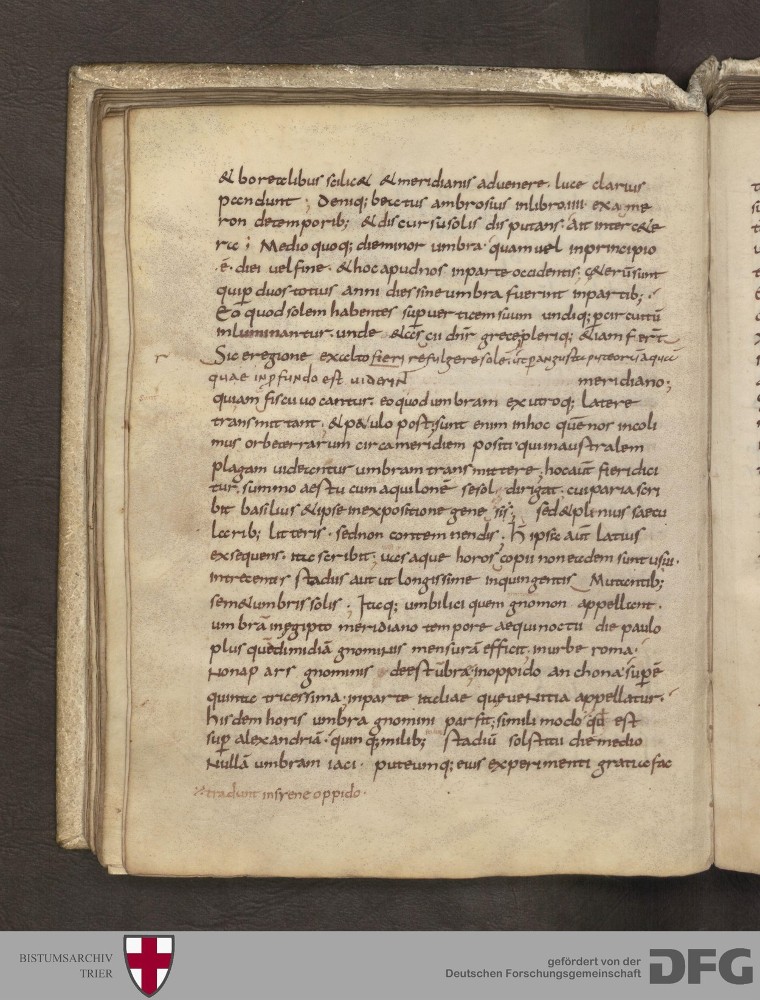 & borealibus scilic& & meridianis advenere. luce clarius
pandunt ; Deniq; beatus ambrosius inlibro.iiii. exame
ron detemporib; & discursu solis disputans. Ait inter c&e
ra ; Medio quoq; die minor umbra. quam uel inprincipio
.ē. diei uel fine. & hoc apud nos inparte occidentis; c&erū sunt
qui p duos totius anni dies sine umbra fuerint inpartib;
Eo quod solem habentes sup uerticem suum undiq; p circuitū
inluminantur. unde & grece pleriq; &iam fer̄t
Sic e regione ex alto fieri refulgere solē. ut p angusta puteorū aquā
quae in pfundo est uiderint meridiano;
quiam fiscu uocantur. eo quod umbram ex utroq; Latere
transmittant. & paulo post; sunt enim in hoc quē nos incoli
mus orbe terrarum circa meridiem positi qui in australem
plagam uideantur umbram transmittere. hoc aūt fieri dici
tur. summo aestu cum aquilonē se sol dirigat. cui paria scri
bit basilius & ipse in expositione genesis; sed & plinius saecu
larib; litteris. sed non contemnendis. h ipse aūt latius
exsequens. ita scribit. uasaque horoscopii non eadem sunt usui.
intrecentis stadiis aut ut longissime inquingentis Mutantib;
semet umbris solis. Itaq; umbilici quem gnomon appellant.
umbrā in egipto meridiano tempore aequinoctii die paulo
plus quē dimidiā gnominis mensurā efficit. in urbe roma.
Nona pars gnominis deest ūbrae. in oppido anchona. supē
quinta tricessima. inparte italiae que uenitia appellatur.
hisdem horis umbra gnomini par fit; simili modo qđ est
sup alexandriā. quinq; milib; stadiū solstitii die medio
Nullā umbram iaci. puteumq; eius experimenti gratia fac
tradunt insyene oppido.
BISTUMSARCHIV
TRIER
gefördert von der
Deutschen Forschungsgemeinschaft
DFG